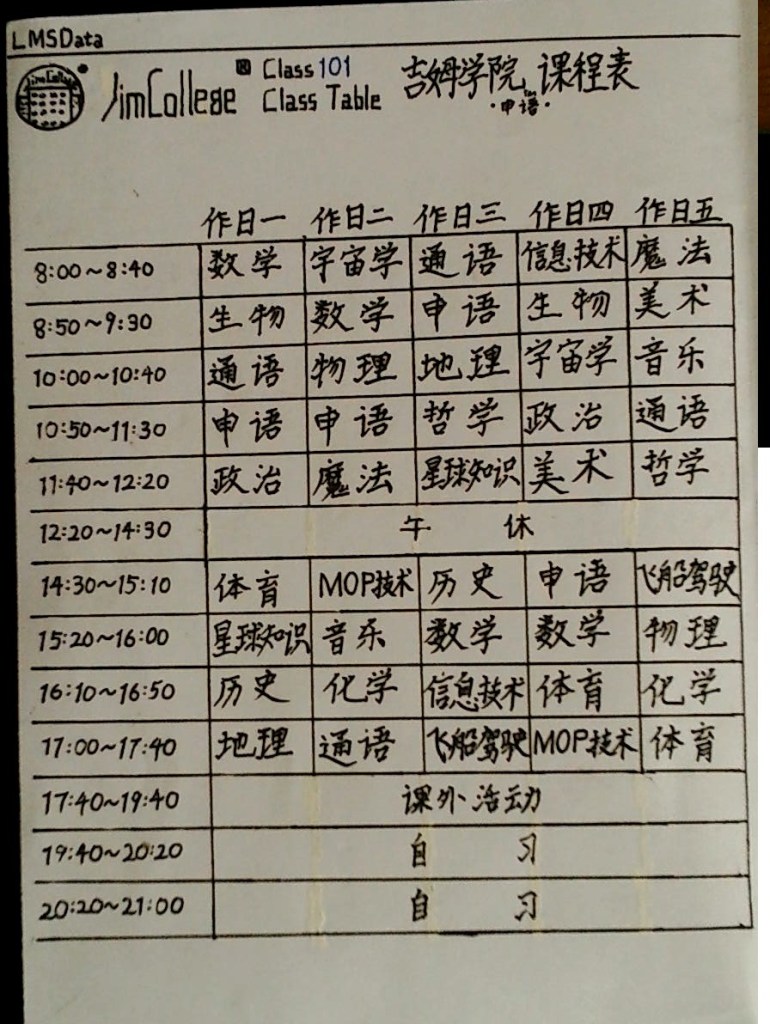 LMSData
JimCollege Class 101 吉姆学院 课程表
JimCollege Class Table ·申语·
作日一 作日二 作日三 作日四 作日五
8:00~8:40 数学 宇宙学 通语 信息技术 魔法
8:50~9:30 生物 数学 申语 生物 美术
10:00~10:40 通语 物理 地理 宇宙学 音乐
10:50~11:30 申语 申语 哲学 政治 通语
11:40~12:20 政治 魔法 星球知识 美术 哲学
12:20~14:30 午休
14:30~15:10 体育 MOP技术 历史 申语 飞船驾驶
15:20~16:00 星球知识 音乐 数学 数学 物理
16:10~16:50 历史 化学 信息技术 体育 化学
17:00~17:40 地理 通语 飞船驾驶 MOP技术 体育
17:40~19:40 课外活动
19:40~20:20 自习
20:20~21:00 自习